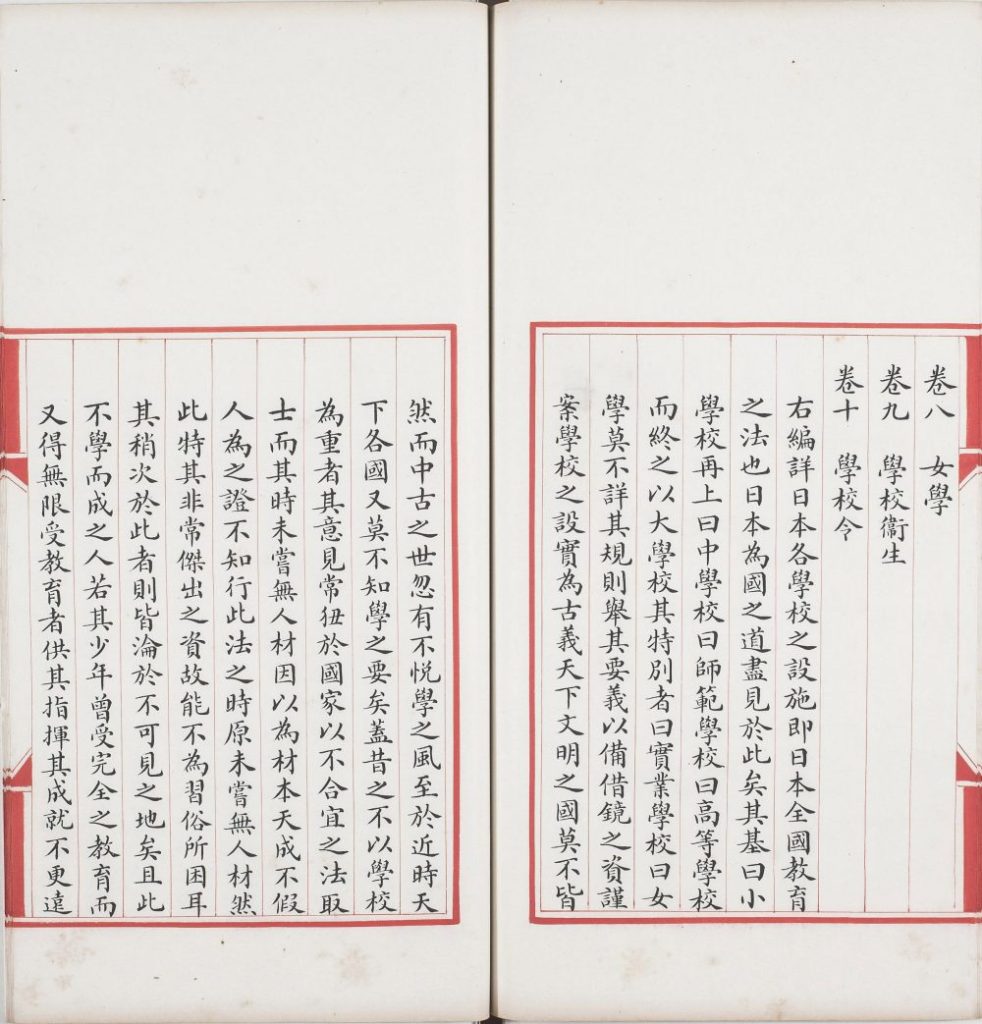 卷八　女學
卷九　學校衞生
卷十　學校令
右編詳日本各學校之設施即日本全國教育
之法也日本為國之道盡見於此矣其基曰小
學校再上曰中學校曰師範學校曰高等學校
而終之以大學校其特別者曰實業學校曰女
學莫不詳其規則舉其要義以備借鏡之資謹
案學校之設實為古義天下文明之國莫不皆
然而中古之世忽有不悦學之風至於近時天
下各國又莫不知學之要矣蓋昔之不以學校
為重者其意見常狃於國家以不合宜之法取
士而其時未嘗無人材因以為材本天成不假
人為之證不知行此法之時原未嘗無人材然
此特其非常傑出之資故能不為習俗所困耳
其稍次於此者則皆淪於不可見之地矣且此
不學而成之人若其少年曾受完全之教育而
又得無限受教育者供其指揮其成就不更遠